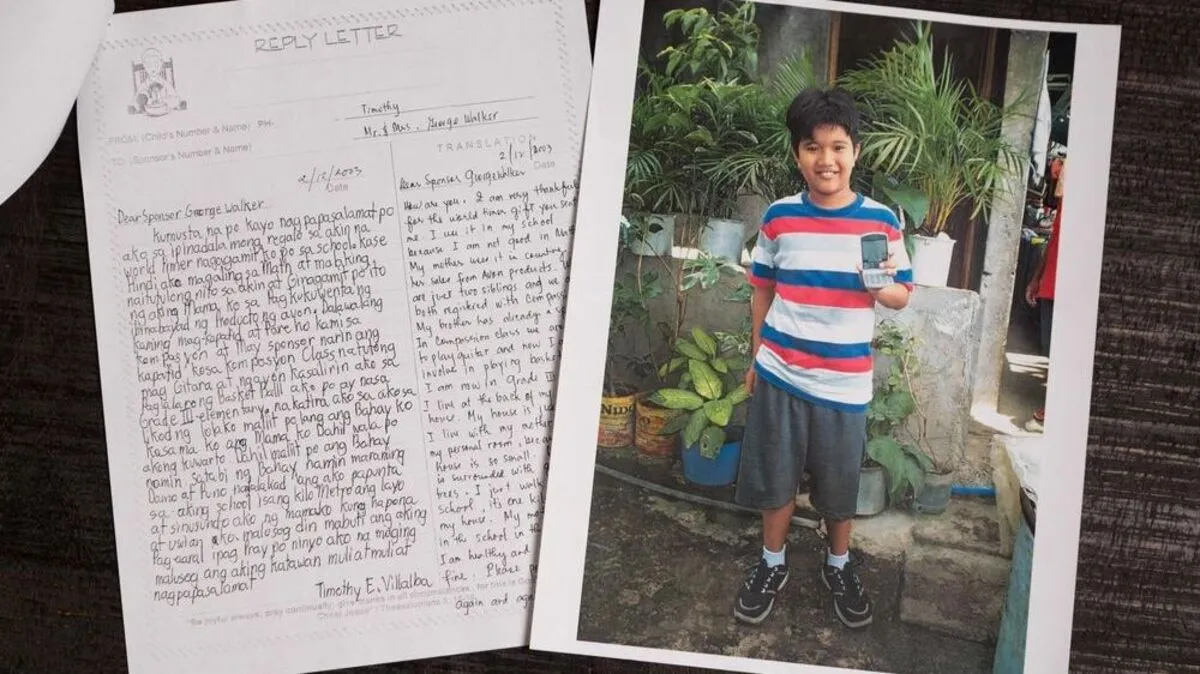 REPLY LETTER
Timothy
FROM: (Child's Number & Name) PH-
Mr. & Mrs. George Walker
TO: (Sponsor's Number & Name)
2/12/2003
Date
Dear Sponsor George Walker
Kumusta na po kayo nag papasalamat po
ako sa ipinadala mong regalo sa akin na
world timer nagagamit ko po sa school kase
Hindi ako magaling sa Math at malaking
naitutulong nito sa akin at Ginagamit po ito
ng aking Mama ko sa Pag kukuwenta ng
pinabayad ng Producto ng avon, Dalawa lang
kaming mag-kapatid at Pareho kami sa
kompasyon at May sponsor narin ang
kapatid ko sa komposyon Class natutong
mag Gitara at ngayon kasalirin ako sa
Paglalaro ng Basket Ball ako po ay nasa
Grade III-elementary, nakatira ako sa
likod ng lolako mallit po lang ang Bahay ko
kasama ko ang Mama ko Dahil wala po
akong kuwarto Dahil maliit po ang Bahay
namin, sa tabi ng Bahay namin maraming
Damo at Puno naglalakad lang ako papunta
sa aking school isang kilo Metro ang layo
at sinusundo ako ng mamako kung hapon
at uwian ako malusog din mabuti ang aking
Pag aaral ipag Pray po ninyo ako ng maging
malusog ang aking katawan muli at muli at
nagpapasalamat
Timothy E. Villalba
TRANSLATION
2/12/2003
Date
Dear Sponsor George Walker
How are you. I am very thankful
for the world timer gift you
me. I use it in my school
because I am not good in
My mother uses it in counting
her sales from Avon products.
are just two siblings and we
both registered with Compassion
My brother has already a
In Compassion class we
to play guitar and now I
involve in playing
I am now in Grade III
I live at the back of my
house. My house is
I live with my mother
my personal room,
house is so small.
is surrounded with
trees. I just walk
school, it's one
my house. My
in the school in the
I am healthy and
fine. Please
again and
"Be joyful always; pray continually; give thanks in all circumstances, for this is
Christ Jesus" 1 Thessalonians